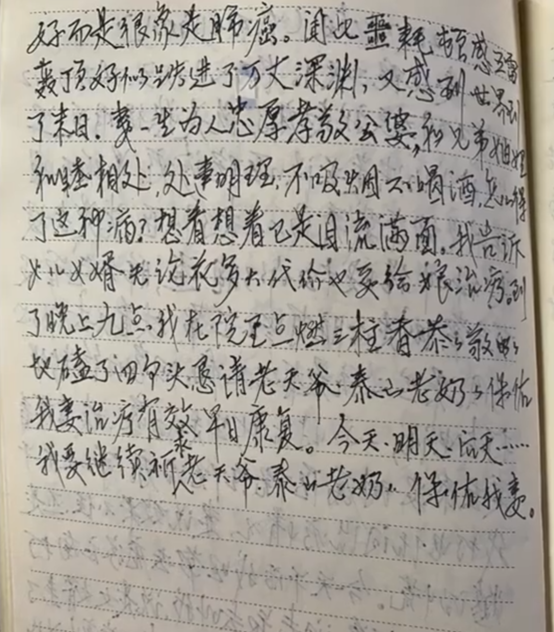 好而是很象是肺癌。闻此噩耗顿感五雷
轰顶好似跌进了万丈深渊,又感到世界到
了末日.妻一生为人忠厚孝敬公婆,和兄弟姐妹
和睦相处,处事明理,不吸烟不喝酒,怎么得
了这种病?想着想着已是泪流满面.我告诉
女儿女婿无论花多大代价也要给娘治疗.到
了晚上九点.我在院里点燃三柱香恭恭敬敬
地磕了四个头恳请老天爷.泰山老奶奶保佑
我妻治疗有效果早日康复。今天.明天.后天……
我要继续祈老天爷.泰山老奶奶保佑我妻。